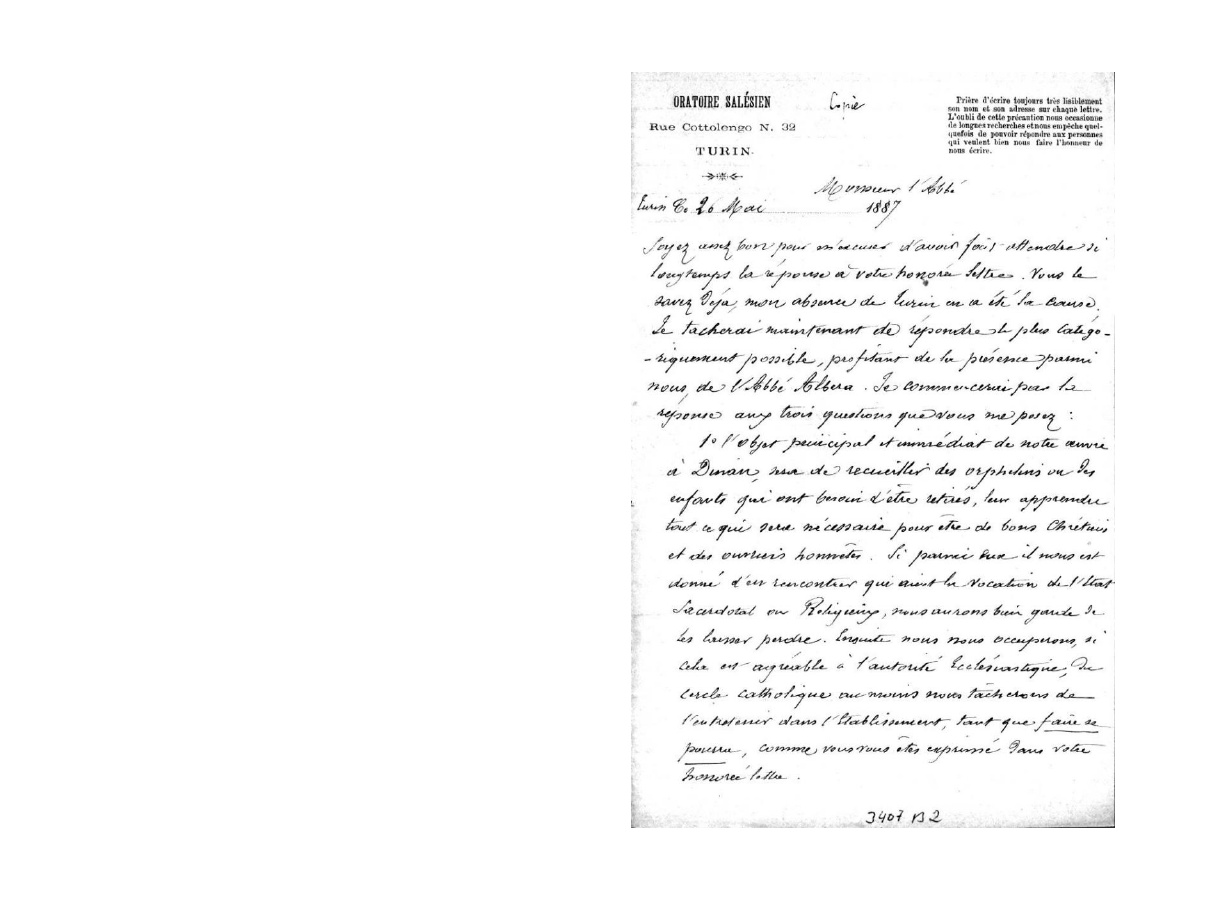 ORATOIRE SALÉSIEN
Rue Cottolengo N. 32
TURIN.
Copie
Prière d'écrire toujours très lisiblement
son nom et son adresse sur chaque lettre.
L'oubli de cette précaution nous occasionne
de longues recherches et nous empêche quel-
quefois de pouvoir répondre aux personnes
qui veulent bien nous faire l'honneur de
nous écrire.
Monsieur l'Abbé
Turin le 26 Mai 1887
Soyez assez bon pour m'excuser d'avoir fait attendre si
longtemps la réponse à votre honorée lettre. Vous le
savez déja, mon absence de Turin en a été la cause.
Je tacherai maintenant de répondre le plus catégo-
-riquement possible, profitant de la présence parmi
nous, de l'Abbé Albera. Je commencerai par la
réponse aux trois questions que vous me posez :
1º l'objet principal et immédiat de notre œuvre
à Dinan, sera de recueillir des orphelins ou des
enfants qui ont besoin d'être retirés, leur apprendre
tout ce qui sera nécessaire pour être de bons Chrétiens
et des ouvriers honnêtes. Si parmi eux il nous est
donné d'en rencontrer qui aient la vocation de l'Etat
Sacerdotal ou Religieux, nous aurons bien garde de
les laisser perdre. Ensuite nous nous occuperons, si
cela est agréable à l'autorité Ecclésiastique, du
cercle catholique au moins nous tâcherons de
l'entretenir dans l'Etablissement, tant que faire se
pourra, comme vous vous êtes exprimé dans votre
honorée lettre.
3407 B 2